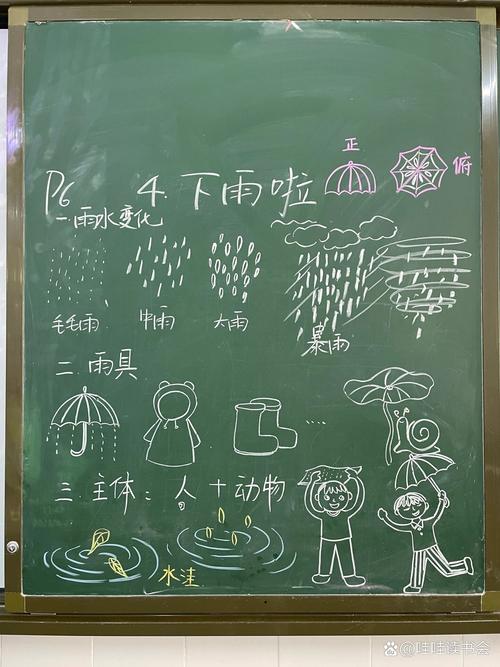 正
俯
P6 4.下雨啦
一.雨水变化
毛毛雨 中雨 大雨 暴雨
二.雨具
....
三.主体：人+动物
水洼
哇哇读书会